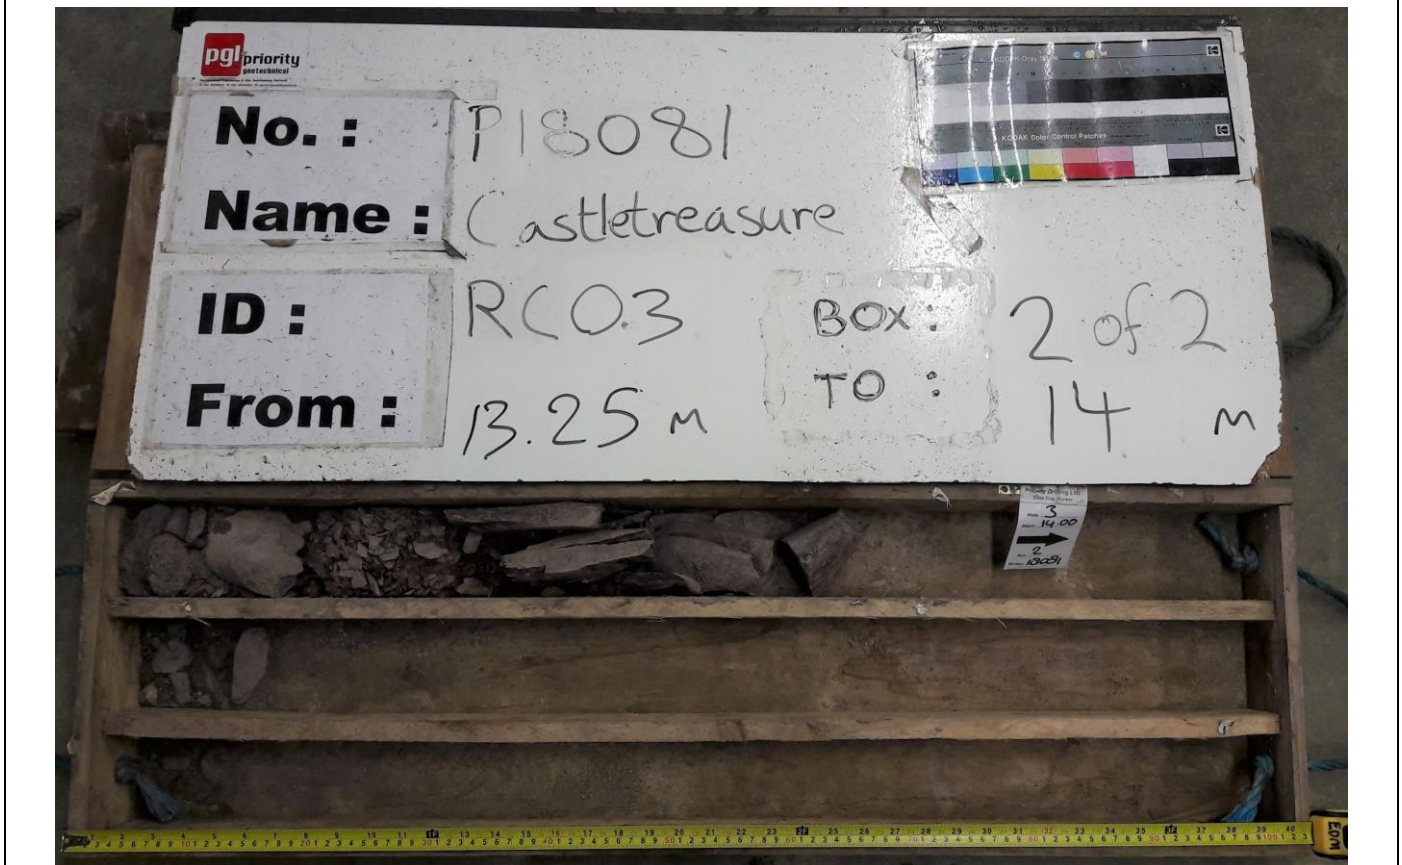 pgl priority
geotechnical
No. : P18081
Name : Castletreasure
ID : RC03
BOX : 2 of 2
From : 13.25 M
TO : 14 M
KODAK Gray Scale
KODAK Color Control Patches
Priority Drilling Ltd.
3
14.00
2
18081